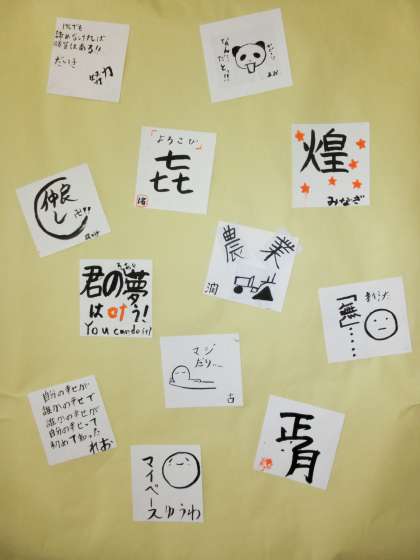 諦めなければ
勝負はある!!
なんだとっ!!
「よろこび」
㐂
煌
みなぎ
仲良し
農業
潤
君の夢
は叶う!
You can do it!
「無」……
マジ
だりぃ…
古
自分の幸せが
誰かの幸せで
誰かの幸せが
自分の幸せって
初めて知った
れお
マイペース
ゆうわ
正月